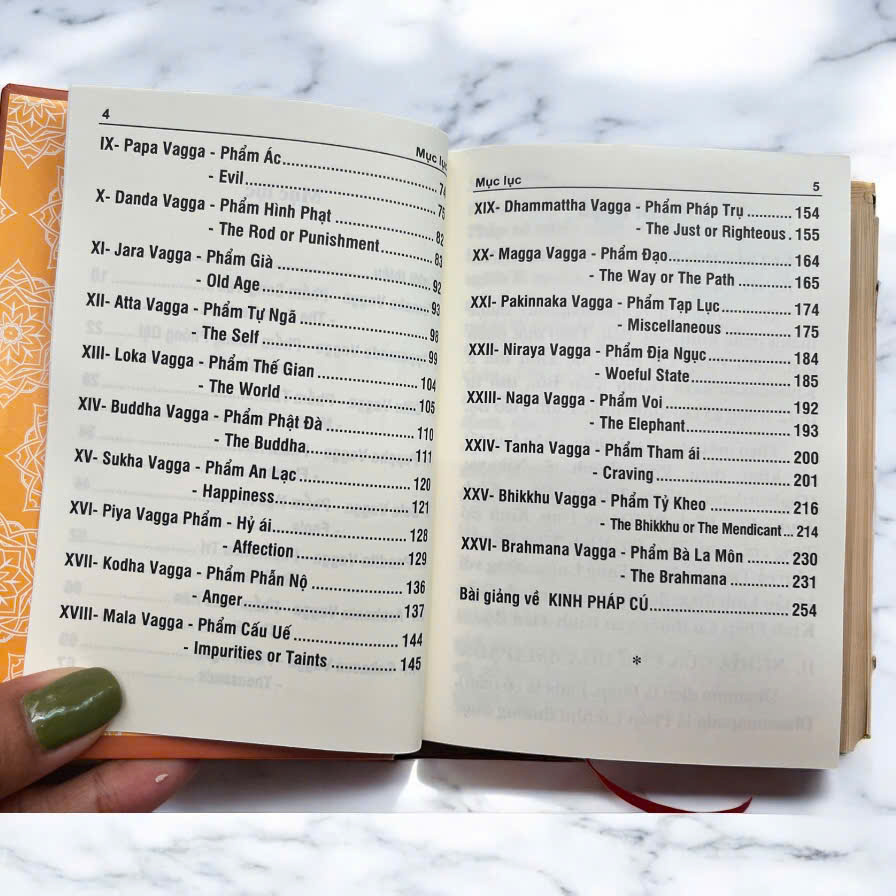 4
Mục lục
IX- Papa Vagga - Phẩm Ác.......... 74
- Evil.......... 75
X- Danda Vagga - Phẩm Hình Phạt .......... 82
- The Rod or Punishment.......... 83
XI- Jara Vagga - Phẩm Già .......... 92
- Old Age.......... 93
XII- Atta Vagga - Phẩm Tự Ngã .......... 98
- The Self .......... 99
XIII- Loka Vagga - Phẩm Thế Gian .......... 104
- The World .......... 105
XIV- Buddha Vagga - Phẩm Phật Đà .......... 110
- The Buddha.......... 111
XV- Sukha Vagga - Phẩm An Lạc .......... 120
- Happiness.......... 121
XVI- Piya Vagga Phẩm - Hỷ ái.......... 128
- Affection .......... 129
XVII- Kodha Vagga - Phẩm Phẫn Nộ .......... 136
- Anger.......... 137
XVIII- Mala Vagga - Phẩm Cấu Uế .......... 144
- Impurities or Taints .......... 145
Mục lục 5
XIX- Dhammattha Vagga - Phẩm Pháp Trụ .......... 154
- The Just or Righteous . 155
XX- Magga Vagga - Phẩm Đạo.......... 164
- The Way or The Path .......... 165
XXI- Pakinnaka Vagga - Phẩm Tạp Lục .......... 174
- Miscellaneous .......... 175
XXII- Niraya Vagga - Phẩm Địa Ngục .......... 184
- Woeful State.......... 185
XXIII- Naga Vagga - Phẩm Voi .......... 192
- The Elephant.......... 193
XXIV- Tanha Vagga - Phẩm Tham ái .......... 200
- Craving.......... 201
XXV- Bhikkhu Vagga - Phẩm Tỷ Kheo .......... 216
- The Bhikkhu or The Mendicant ... 214
XXVI- Brahmana Vagga - Phẩm Bà La Môn .......... 230
- The Brahmana .......... 231
Bài giảng về KINH PHÁP CÚ.......... 254
*